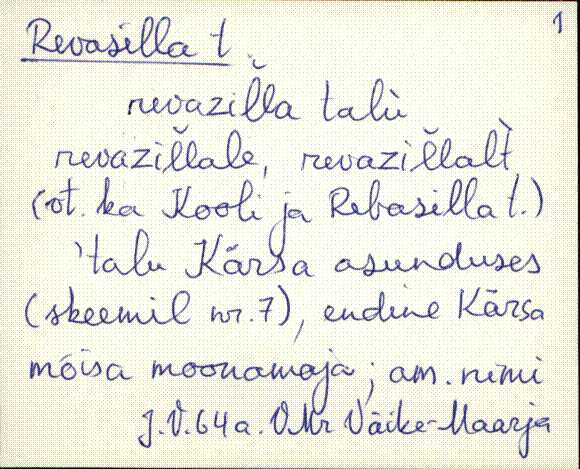 1
Revasilla t.
revazil̆la talù
revazil̆lale, revazil̆lal̀t
(vt. ka Kooli ja Rebasilla t.)
'talu Kärsa asunduses
(skeemil nr. 7), endine Kärsa
mõisa moonamaja; am. nimi
J.V. 64 a. VMr Väike-Maarja